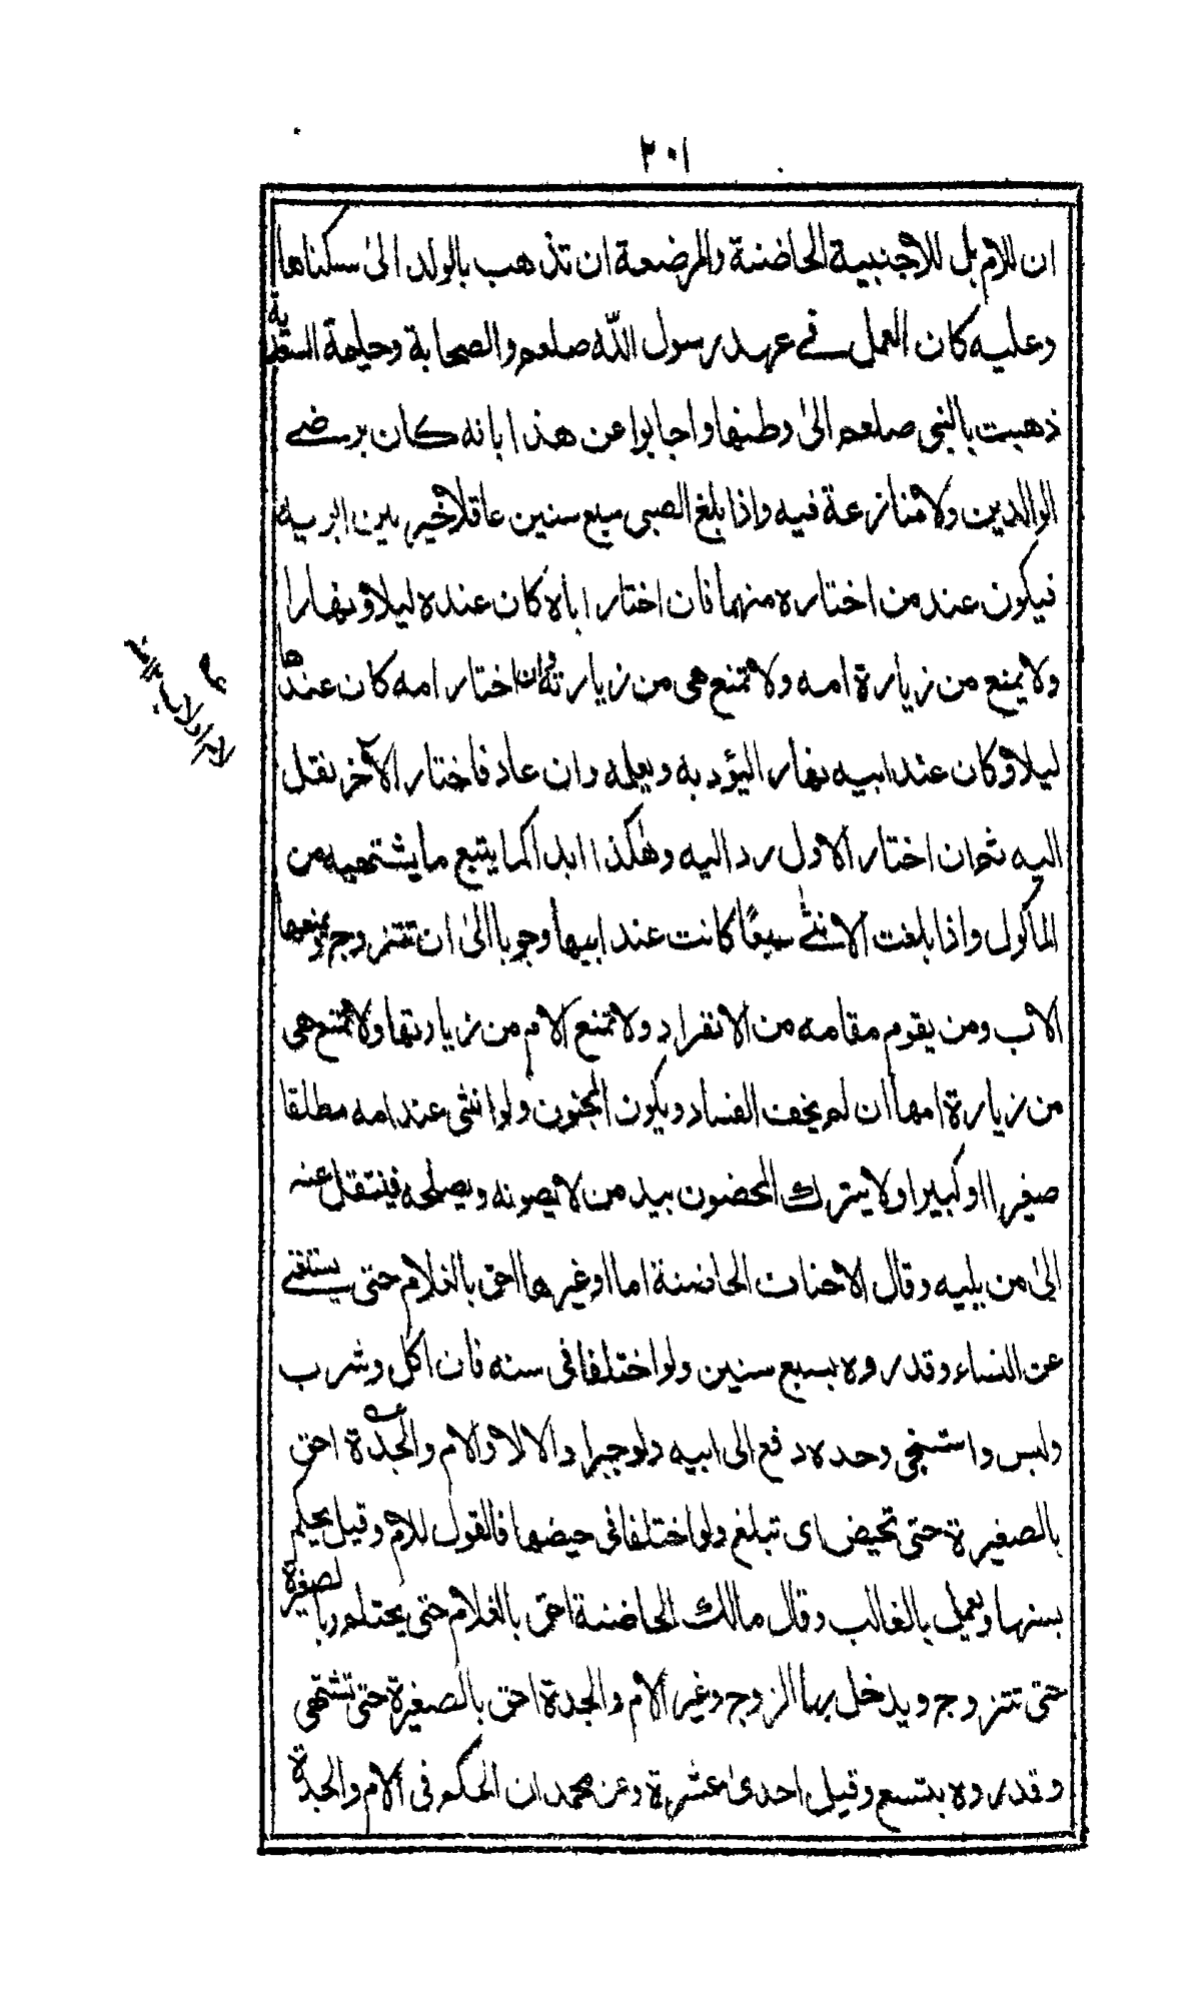 ٢٠١
ان للام بل للاجنبية الحاضنة والمرضعة ان تذهب بالولد الىٰ سكناها
وعليه كان العمل في عهد رسول الله صلعم والصحابة وحليمة السعدية
ذهبت بالنبي صلعم الىٰ وطنها واجابوا عن هذا بانه كان برضى
الوالدين ولا منازعة فيه واذا بلغ الصبي سبع سنين عاقلا خير بين ابويه
فيكون عند من اختاره منهما فان اختار اباه كان عنده ليلا ونهارا
ولا يمنع من زيارة امه ولا تمنع هي من زيارته وان اختار امه كان عندها
ليلا وكان عند ابيه نهارا ليؤدبه ويعلمه وان عاد فاختار الآخر نقل
اليه ثم ان اختار الاول رد اليه وهٰكذا ابدا كما يتبع ما يشتهيه من
المأكول واذا بلغت الانثىٰ سبعًا كانت عند ابيها وجوبا الىٰ ان تتزوج ويمنعها
الاب ومن يقوم مقامه من الانفراد ولا تمنع الام من زيارتها ولا تمنع هي
من زيارة امها ان لم يخف الفساد ويكون المجنون ولو انثى عند امه مطلقا
صغيرا او كبيرا ولا يترك المحضون بيد من لا يصونه ويصلحه فينتقل عنه
الىٰ من يليه وقال الاحناف الحاضنة اما او غيرها احق بالغلام حتى يستغنے
عن النساء وقدروه بسبع سنين ولو اختلفا في سنه فان اكل وشرب
ولبس واستنجى وحده دفع الى ابيه ولو جبرا والا لا والام والجدة احق
بالصغيرة حتى تحيض اى تبلغ ولو اختلفا في حيضها فالقول للام وقيل يحكم
بسنها ويعمل بالغالب وقال مالك الحاضنة احق بالغلام حتى يحتلم وبالصغيرة
حتى تتزوج ويدخل بها الزوج وغير الام والجدة احق بالصغيرة حتى تشتهى
وقدروه بتسع وقيل احدىٰ عشرة وعن محمد ان الحكم فى الام والجدة